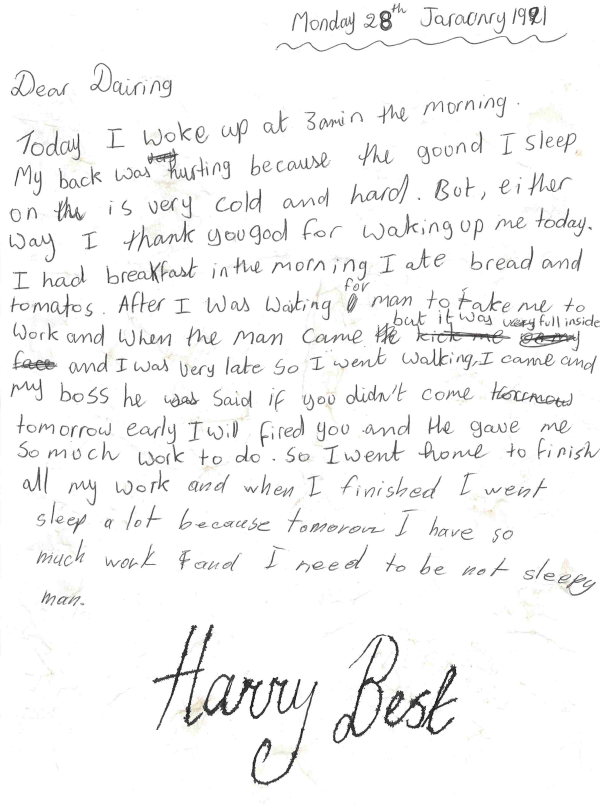 Monday 28th Jaraonry 1991
Dear Dairing
Today I woke up at 3am in the morning.
My back was very hurting because the gound I sleep
on the is very cold and hard. But, either
way I thank you god for waking up me today.
I had breakfast in the morning I ate bread and
tomatos. After I was waiting for man to take me to
work and when the man came but it was very full inside
and I was very late so I went walking, I came and
my boss he was said if you didn't come
tomorrow early I will fired you and He gave me
So much work to do. So I went home to finish
all my work and when I finished I went
sleep a lot because tomorow I have so
much work and I need to be not sleepy
man.
Harry Best